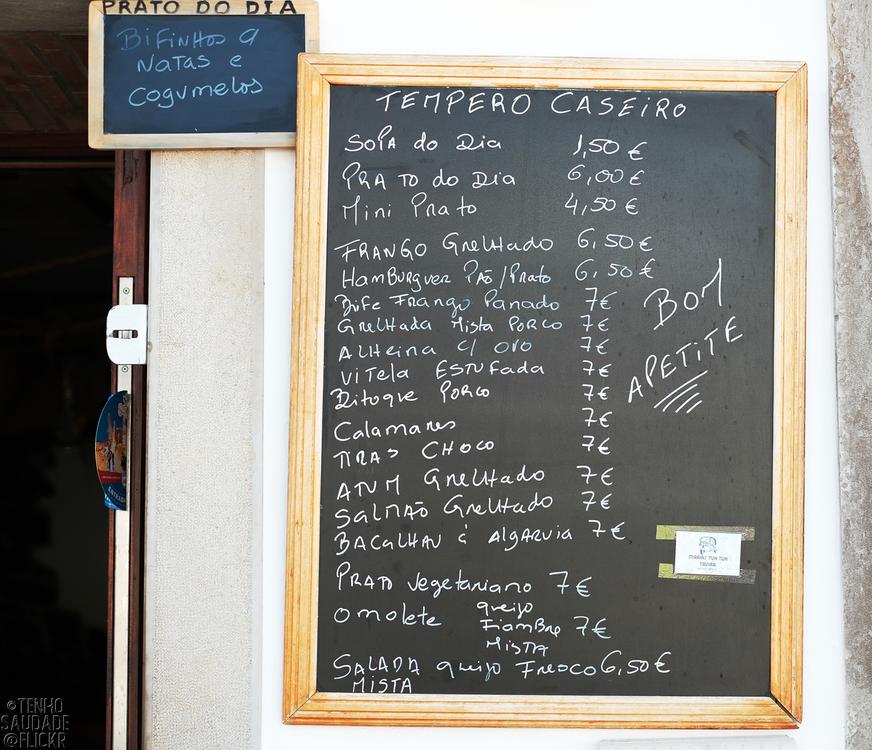 PRATO DO DIA
BIFINHOS
NATAS e
Cogumelos
TEMPERO CASEIRO
SOPA do Dia 1,50 €
PRATO do Dia 6,00 €
Mini Prato 4,50 €
FRANGO Grelhado 6,50 €
HamBurguer PÃO/Prato 6,50 €
Bife Frango Panado 7€
Grelhada Mista PORCO 7€
ALHEIRA C/ OVO 7€
VITELA ESTUFADA 7€
Bitoque PORCO 7€
Calamares 7€
TIRAS CHOCO 7€
ATUM Grelhado 7€
SALMÃO Grelhado 7€
BACALHAU à ALGARVIA 7€
PRATO vegetariano 7€
Omolete queijo
FiamBRE 7€
MISTA
SALADA queijo Fresco 6,50€
MISTA
BOM
APETITE
TAVIRA
©TENHO
SAUDADE
@FLICKR